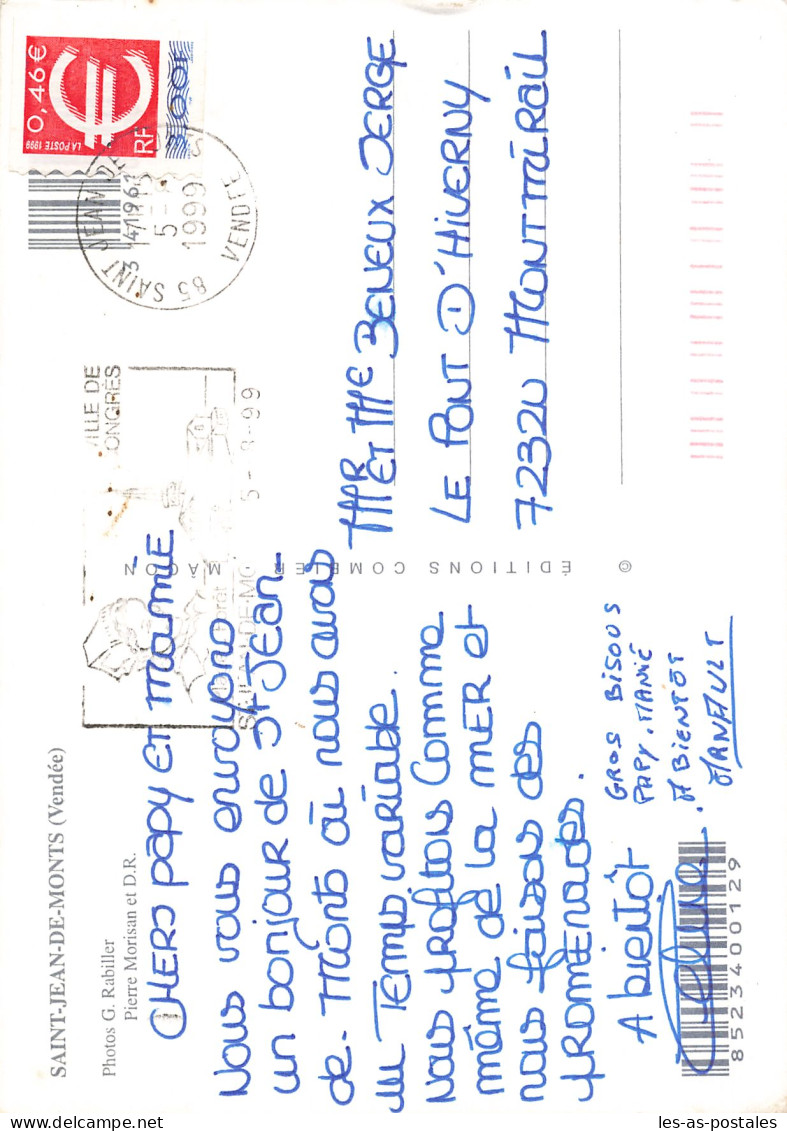 SAINT-JEAN-DE-MONTS (Vendée)
Photos G. Rabiller
Pierre Morisan et D.R.
CHERS PAPY ET MAMIE
NOUS VOUS envoyons
un bonjour de ST JEAN-
de-Monts où nous avons
un Temps variable.
Nous profitons comme
même de la MER et
nous faisons des
PROMENADES.
A bientôt
GROS BISOUS
PAPY. MAMIE
A BIENTOT
ARNAULT
8523400129
© ÉDITIONS COMBIER MÂCON
VILLE DE
CONGRÈS
forêt
5-8-99
0,46 €
RF
LA POSTE 1999
3,00F
85 SAINT JEAN DE MONTS
1999
VENDEE
MR ET MME BENEUX SERGE
LE PONT D'HIVERNY
72320 MONTMIRAIL
les-as-postales